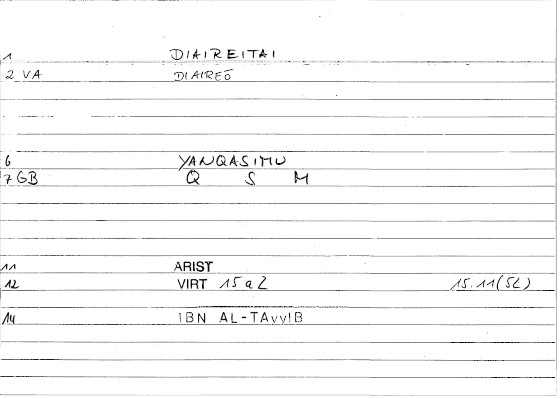 1 DIAIREITAI
2 VA DIAIREŌ
6 YANQASIMU
7 GB Q S M
11 ARIST
12 VIRT 15 a 2 15.11(52)
14 IBN AL-TAvvIB